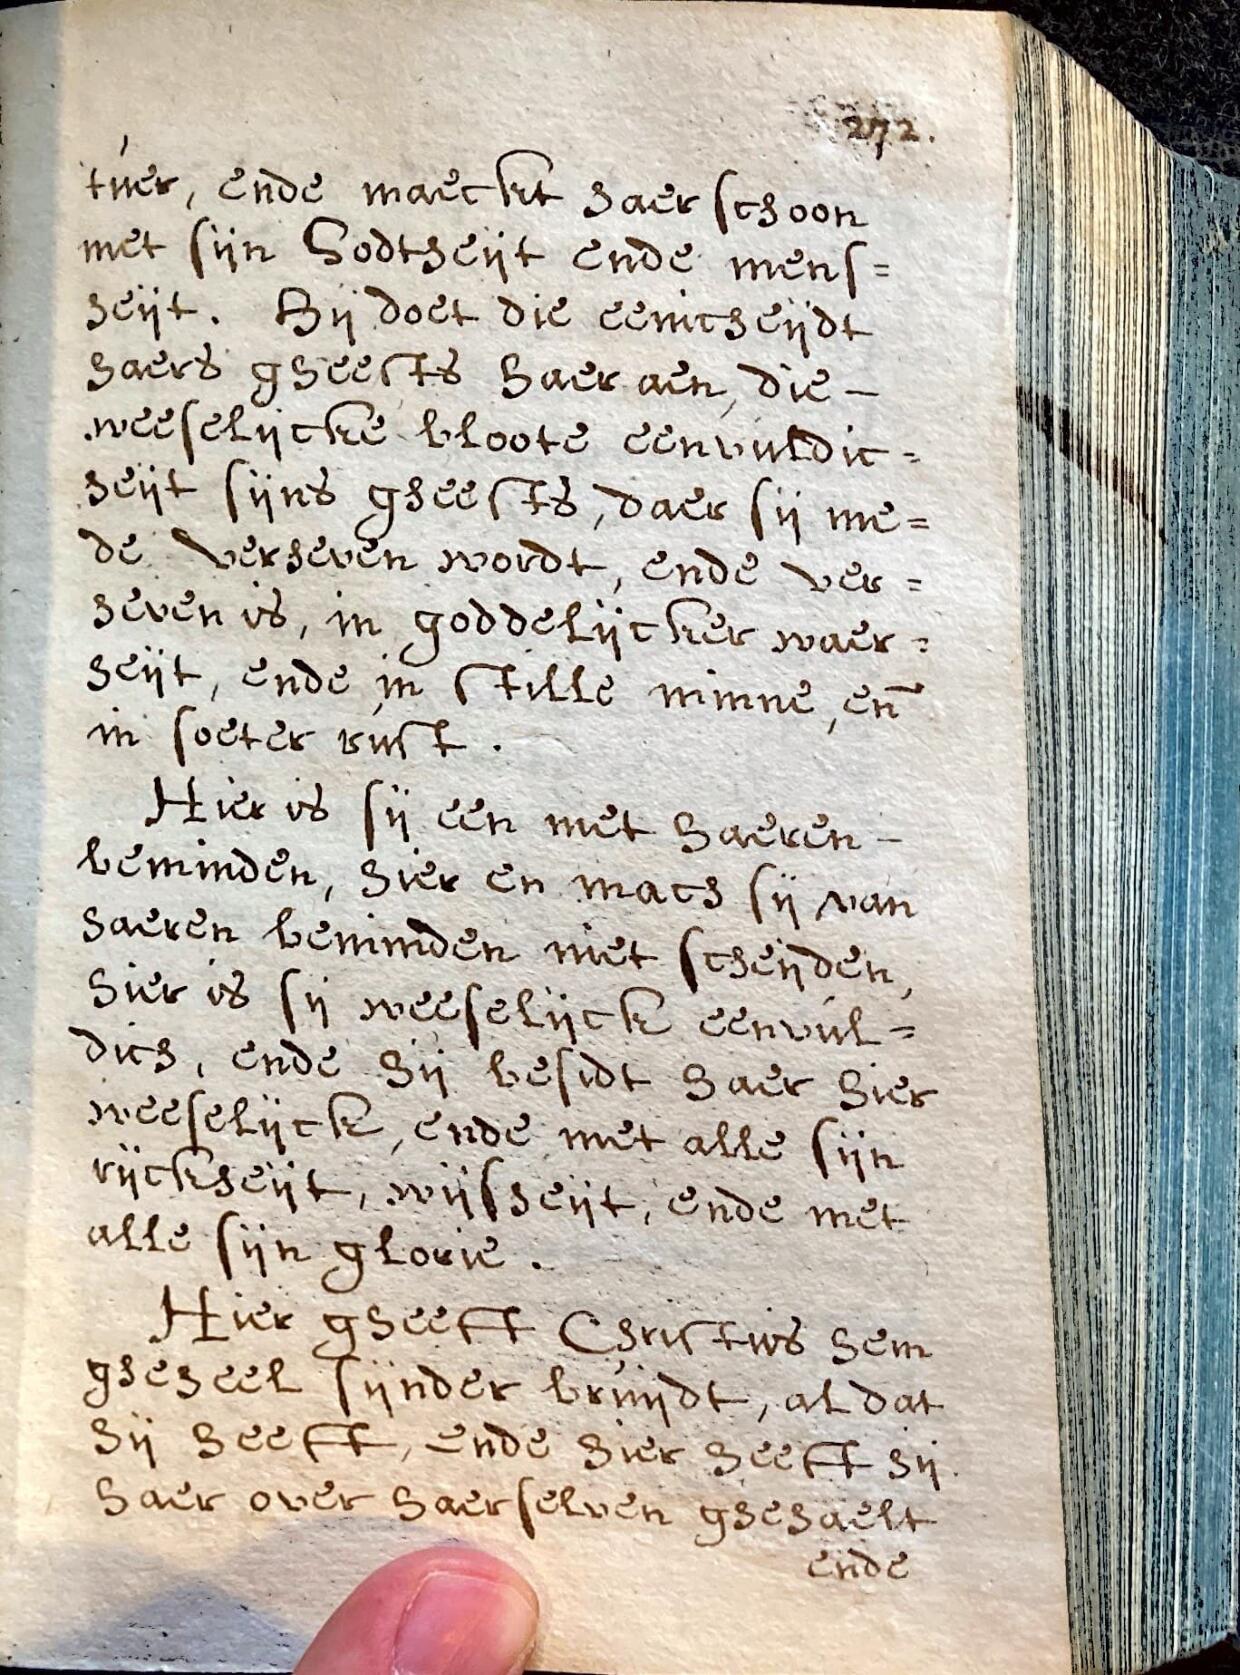 272.
túer, ende maeckt haer schoon
met sijn Godtheijt ende mens=
heijt. Hij doet die eenicheijdt
haers gheests haer aen, die –
weeselijcke bloote eenvuldic=
heijt sijns gheests, daer sij me=
de verheven wordt, ende ver=
heven is, in goddelijcker waer=
heijt, ende in stille minne, en̄
in soeter rust.
Hier is sij een met haeren –
beminden, hier en mach sij van
haeren beminden niet scheijden,
hier is sij weeselijck eenvúl=
dich, ende hij besidt haer hier
weeselijck, ende met alle sijn
rijckheijt, wijsheijt, ende met
alle sijn glorie.
Hier gheeft Christus hem
gheheel sijnder bruijdt, al dat
hij heeft, ende hier heeft hij
haer over haerselven ghehaelt
ende